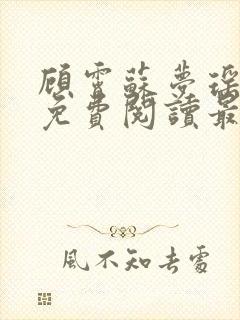 顾霄蘇夢瑶
免費閱讀最
風不知去處